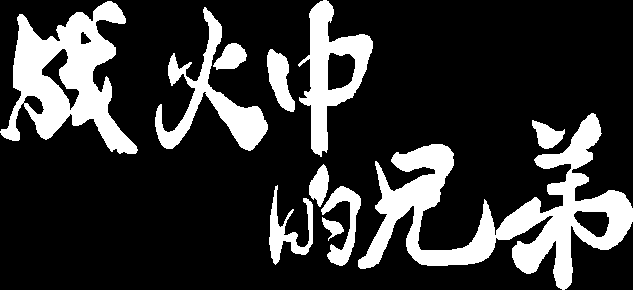 战火中
的兄弟